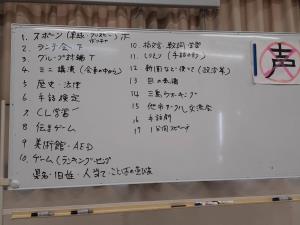 1. スポーツ (卓球・フリスビー) 下
ボッチャ
2. ランチ会 下
3. グループ討論 T
4. ミニ講演 (会員の中から)
5 歴史・法律
6 手話検定
7 CL学習
8 伝言ゲーム
9 美術館・AED
10. ゲーム (ランキング・セブン
県名・旧姓・人当て・ことばの
10 指文字、数詞学習
11 しりとり (手話のみ)
12 新聞など使って (政治等)
13 目の
14 三島ウォーキング
15 他市サークル交流会
16 手話劇
17 1分間スピーチ
声